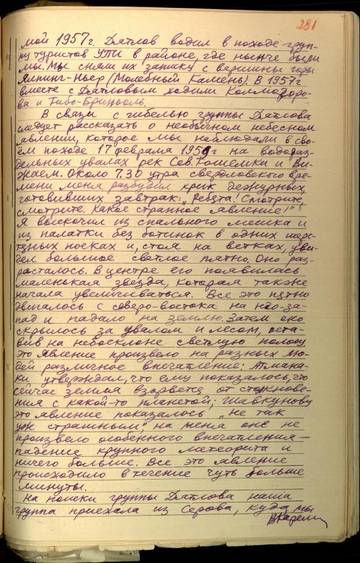 281
мой 1957 г. Дятлов водил в походе груп-
пу туристов УПИ в районе, где нынче были
мы. Мы сняли их записку с вершины горы
Ялпинг-Ньер (Молебный Камень). В 1957 г.
вместе с Дятловым ходили Колмогоро-
ва и Тибо-Бриньоль.
В связи с гибелью группы Дятлова
следует рассказать о необычном небесном
явлении, которое мы наблюдали в сво-
ем походе 17 февраля 1959 г на водораз-
дельных увалах рек Сев. Тошемки и Ви-
жаем. Около 7.30 утра свердловского вре-
мени меня разбудил крик дежурных,
готовивших завтрак: „Ребята! Смотрите,
смотрите. Какое странное явление!"
Я выскочил из спального мешка и
из палатки без ботинок в одних шер-
стяных носках и, стоя на ветках, уви-
дел большое светлое пятно. Оно раз-
расталось. В центре его появилась
маленькая звезда, которая также
начала увеличиваться. Все это пятно
двигалось с северо-востока на юго-за-
пад и падало на землю. Затем оно
скрылось за увалом и лесом, оста-
вив на небосклоне светлую полосу.
Это явление произвело на разных лю-
дей различное впечатление: Атмана-
ки утверждал, что ему показалось, что
сейчас земля взорвется от столкнове-
ния с какой-то планетой; Шавкунову
это явление показалось „не так
уж страшным", на меня оно не
произвело особенного впечатления —
падение крупного метеорита и
ничего больше. Все это явление
происходило в течение чуть больше
минуты.
На поиски группы Дятлова наша
группа приехала из Серова, куда мы
ВКарелин